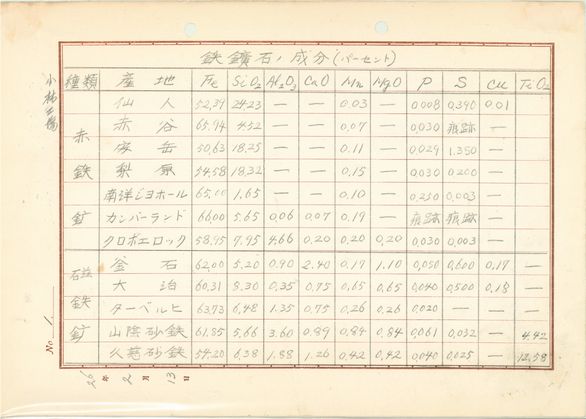 鉄鑛石ノ成分(パーセント)
種類 産地 Fe SiO2 Al2O3 CaO Mn MgO P S Cu TiO2
赤鉄鉱
仙人 52,39 24.23 — — 0.03 — 0.008 0.390 0.01
赤谷 65.94 4.52 — — 0.07 — 0.030 痕跡 —
安岳 50,63 18.25 — — 0.11 — 0.029 1.350 —
54.58 18,32 — — 0.15 — 0.030 0.200 —
南洋ジヨホール 65.00 1.65 — — 0.10 — 0.250 0.003 —
カンバーランド 66.00 5.65 0.06 0.07 0.19 — 痕跡 痕跡 —
クロボエロック 58.95 7.95 4.66 0.20 0.20 0,20 0,030 0,003 —
磁鉄鉱
釜石 62,00 5.20 0.90 2.40 0.19 1.10 0,050 0,600 0.17 —
大冶 60.31 8.30 0.35 0.75 0.65 0.65 0,040 0,500 0.18 —
ターベルヒ 63.73 6.48 1.35 0.75 0.26 0.26 0.020 — — —
山陰砂鉄 61.85 5.66 3.60 0.89 0.84 0.84 0,061 0,032 — 4.42
久慈砂鉄 54.20 6.38 1.88 1.26 0.42 0.42 0,040 0,025 — 12,58
No. 1
26年 2月 13日